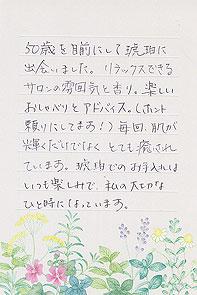 50歳を目前にして琥珀に
出会いました。リラックスできる
サロンの雰囲気と香り。楽しい
おしゃべりとアドバイス。(ホント
頼りにしてます!)毎回、肌が
輝くだけでなくとても癒され
ています。琥珀でのお手入れは
いつも楽しみで、私の大切な
ひと時になっています。